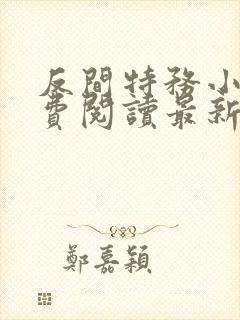 反間特務小
費閱讀最新
鄭嘉穎